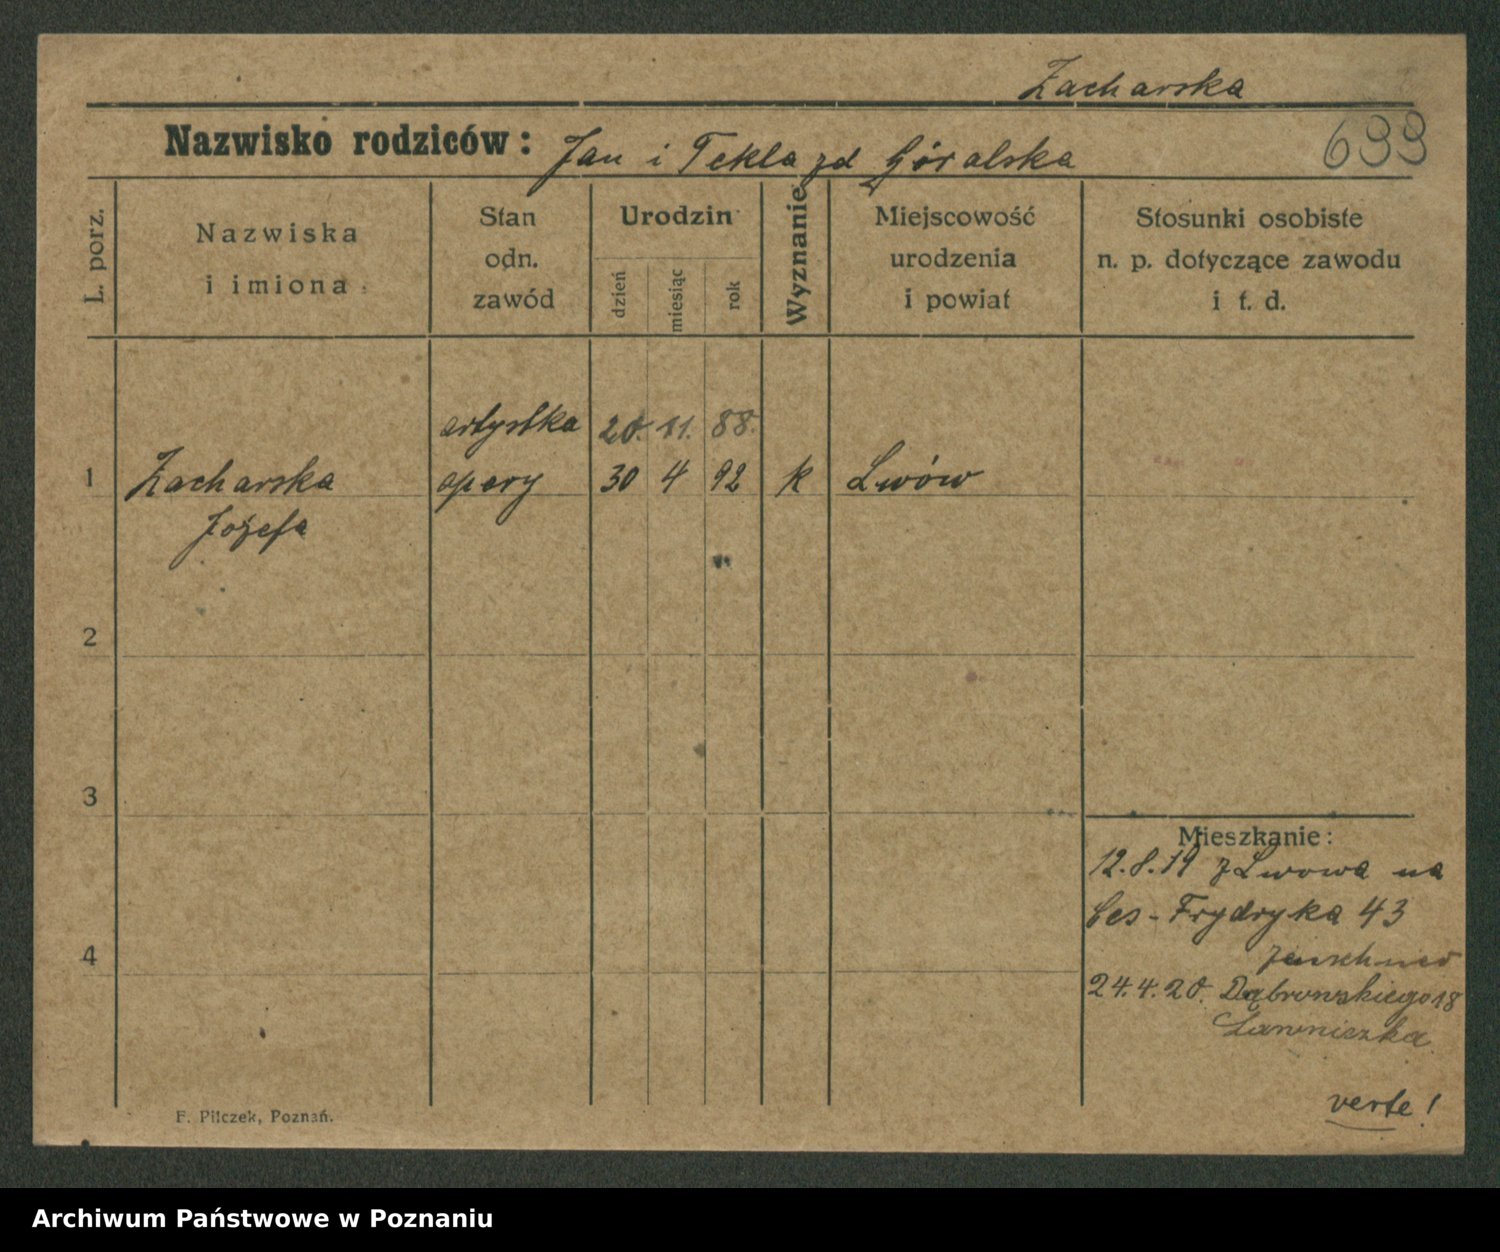 Zacharska
Nazwisko rodziców: Jan i Tekla zd Góralska
699
L. porz.
Nazwiska
i imiona
Stan
odn.
zawód
Urodzin
dzień
miesiąc
rok
Wyznanie
Miejscowość
urodzenia
i powiat
Stosunki osobiste
n. p. dotyczące zawodu
i t. d.
artystka 20. 11. 88.
1 Zacharska opery 30 4 92 k Lwów
Józefa
2
3
Mieszkanie:
12.8.19 z Lwowa na
Ces-Frydryka 43
4
24.4.20. Dąbrowskiego 18
Ławniczka
verte!
F. Pilczek, Poznań.
Archiwum Państwowe w Poznaniu